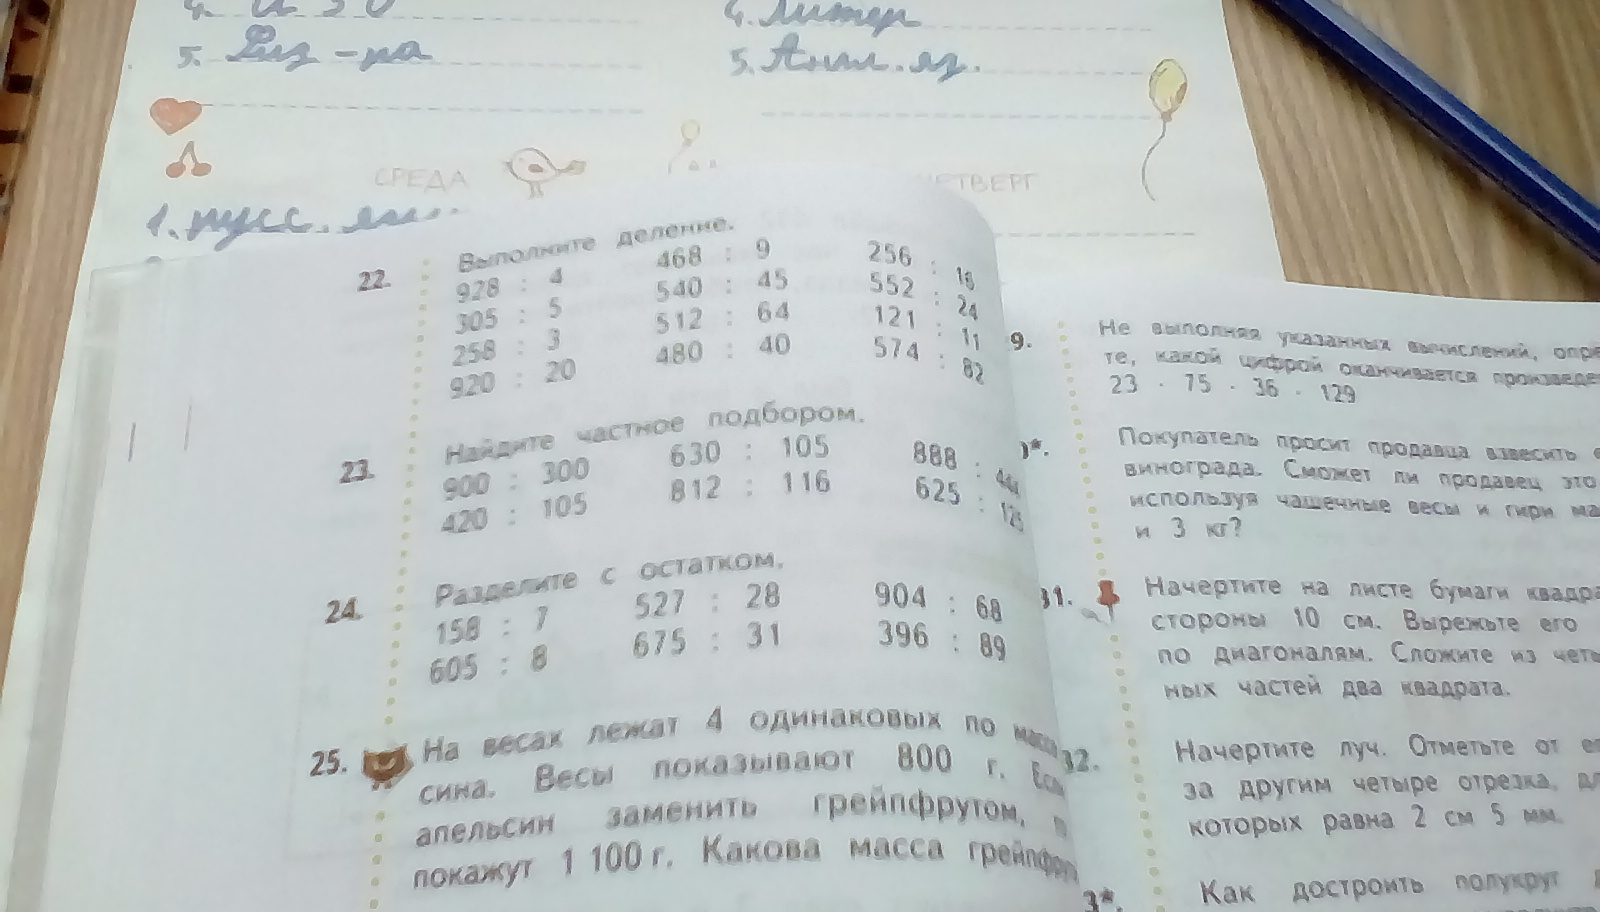 5. Физ-ра
4. Литер
5. Англ. яз.
СРЕДА
ЧЕТВЕРГ
1. русс.
22. Выполните деление.
928 : 4 468 : 9 256 : 16
305 : 5 540 : 45 552 : 24
258 : 3 512 : 64 121 : 11
920 : 20 480 : 40 574 : 82
23. Найдите частное подбором.
900 : 300 630 : 105 888 : 444
420 : 105 812 : 116 625 : 125
24. Разделите с остатком.
158 : 7 527 : 28 904 : 68
605 : 8 675 : 31 396 : 89
25. На весах лежат 4 одинаковых по массе
сина. Весы показывают 800 г. Если
апельсин заменить грейпфрутом,
покажут 1 100 г. Какова масса грейпфру
9. Не выполняя указанных вычислений, опре
те, какой цифрой оканчивается произведе
23 · 75 · 36 · 129
)*. Покупатель просит продавца взвесить
винограда. Сможет ли продавец это
используя чашечные весы и гири ма
и 3 кг?
31. Начертите на листе бумаги квадра
стороны 10 см. Вырежьте его
по диагоналям. Сложите из четы
ных частей два квадрата.
32. Начертите луч. Отметьте от ег
за другим четыре отрезка, дл
которых равна 2 см 5 мм.
3*. Как достроить полукруг